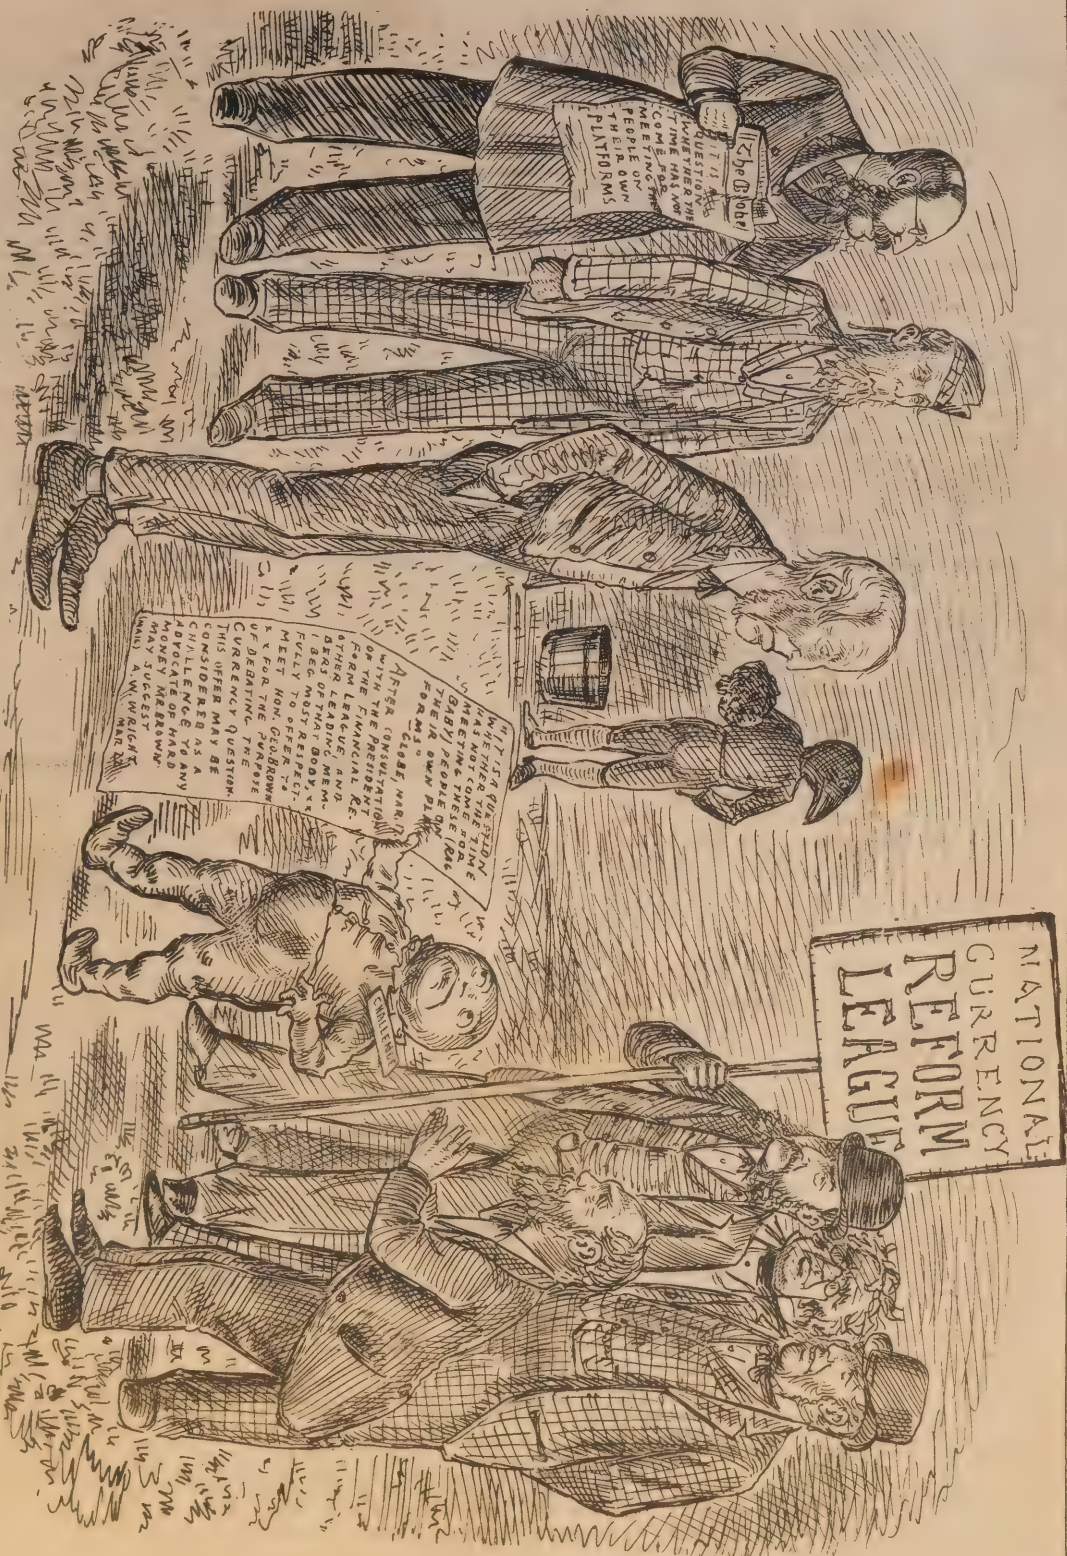 The Globe
IT IS A
QUESTION
WHETHER THE
TIME HAS NOT
COME FOR
MEETING THE
PEOPLE ON
THEIR OWN
PLATFORMS
"IT IS A QUESTION
WHETHER THE TIME
HAS NOT COME FOR
MEETING THESE RAG
BABY PEOPLE ON
THEIR OWN PLAT
FORMS"
GLOBE, MAR.
AFTER CONSULTATION
WITH THE PRESIDENT
OF THE FINANCIAL RE-
FORM LEAGUE, AND
OTHER LEADING MEM-
BERS OF THAT BODY,
I BEG MOST RESPECT-
FULLY TO OFFER TO
MEET HON. GEO. BROWN
FOR THE PURPOSE
OF DEBATING THE
CURRENCY QUESTION
THIS OFFER MAY BE
CONSIDERED AS A
CHALLENGE TO ANY
ADVOCATE OF HARD
MONEY MR BROWN
MAY SUGEST
A. W. WRIGHT.
MAR.
NATIONAL
CURRENCY
REFORM
LEAGUE